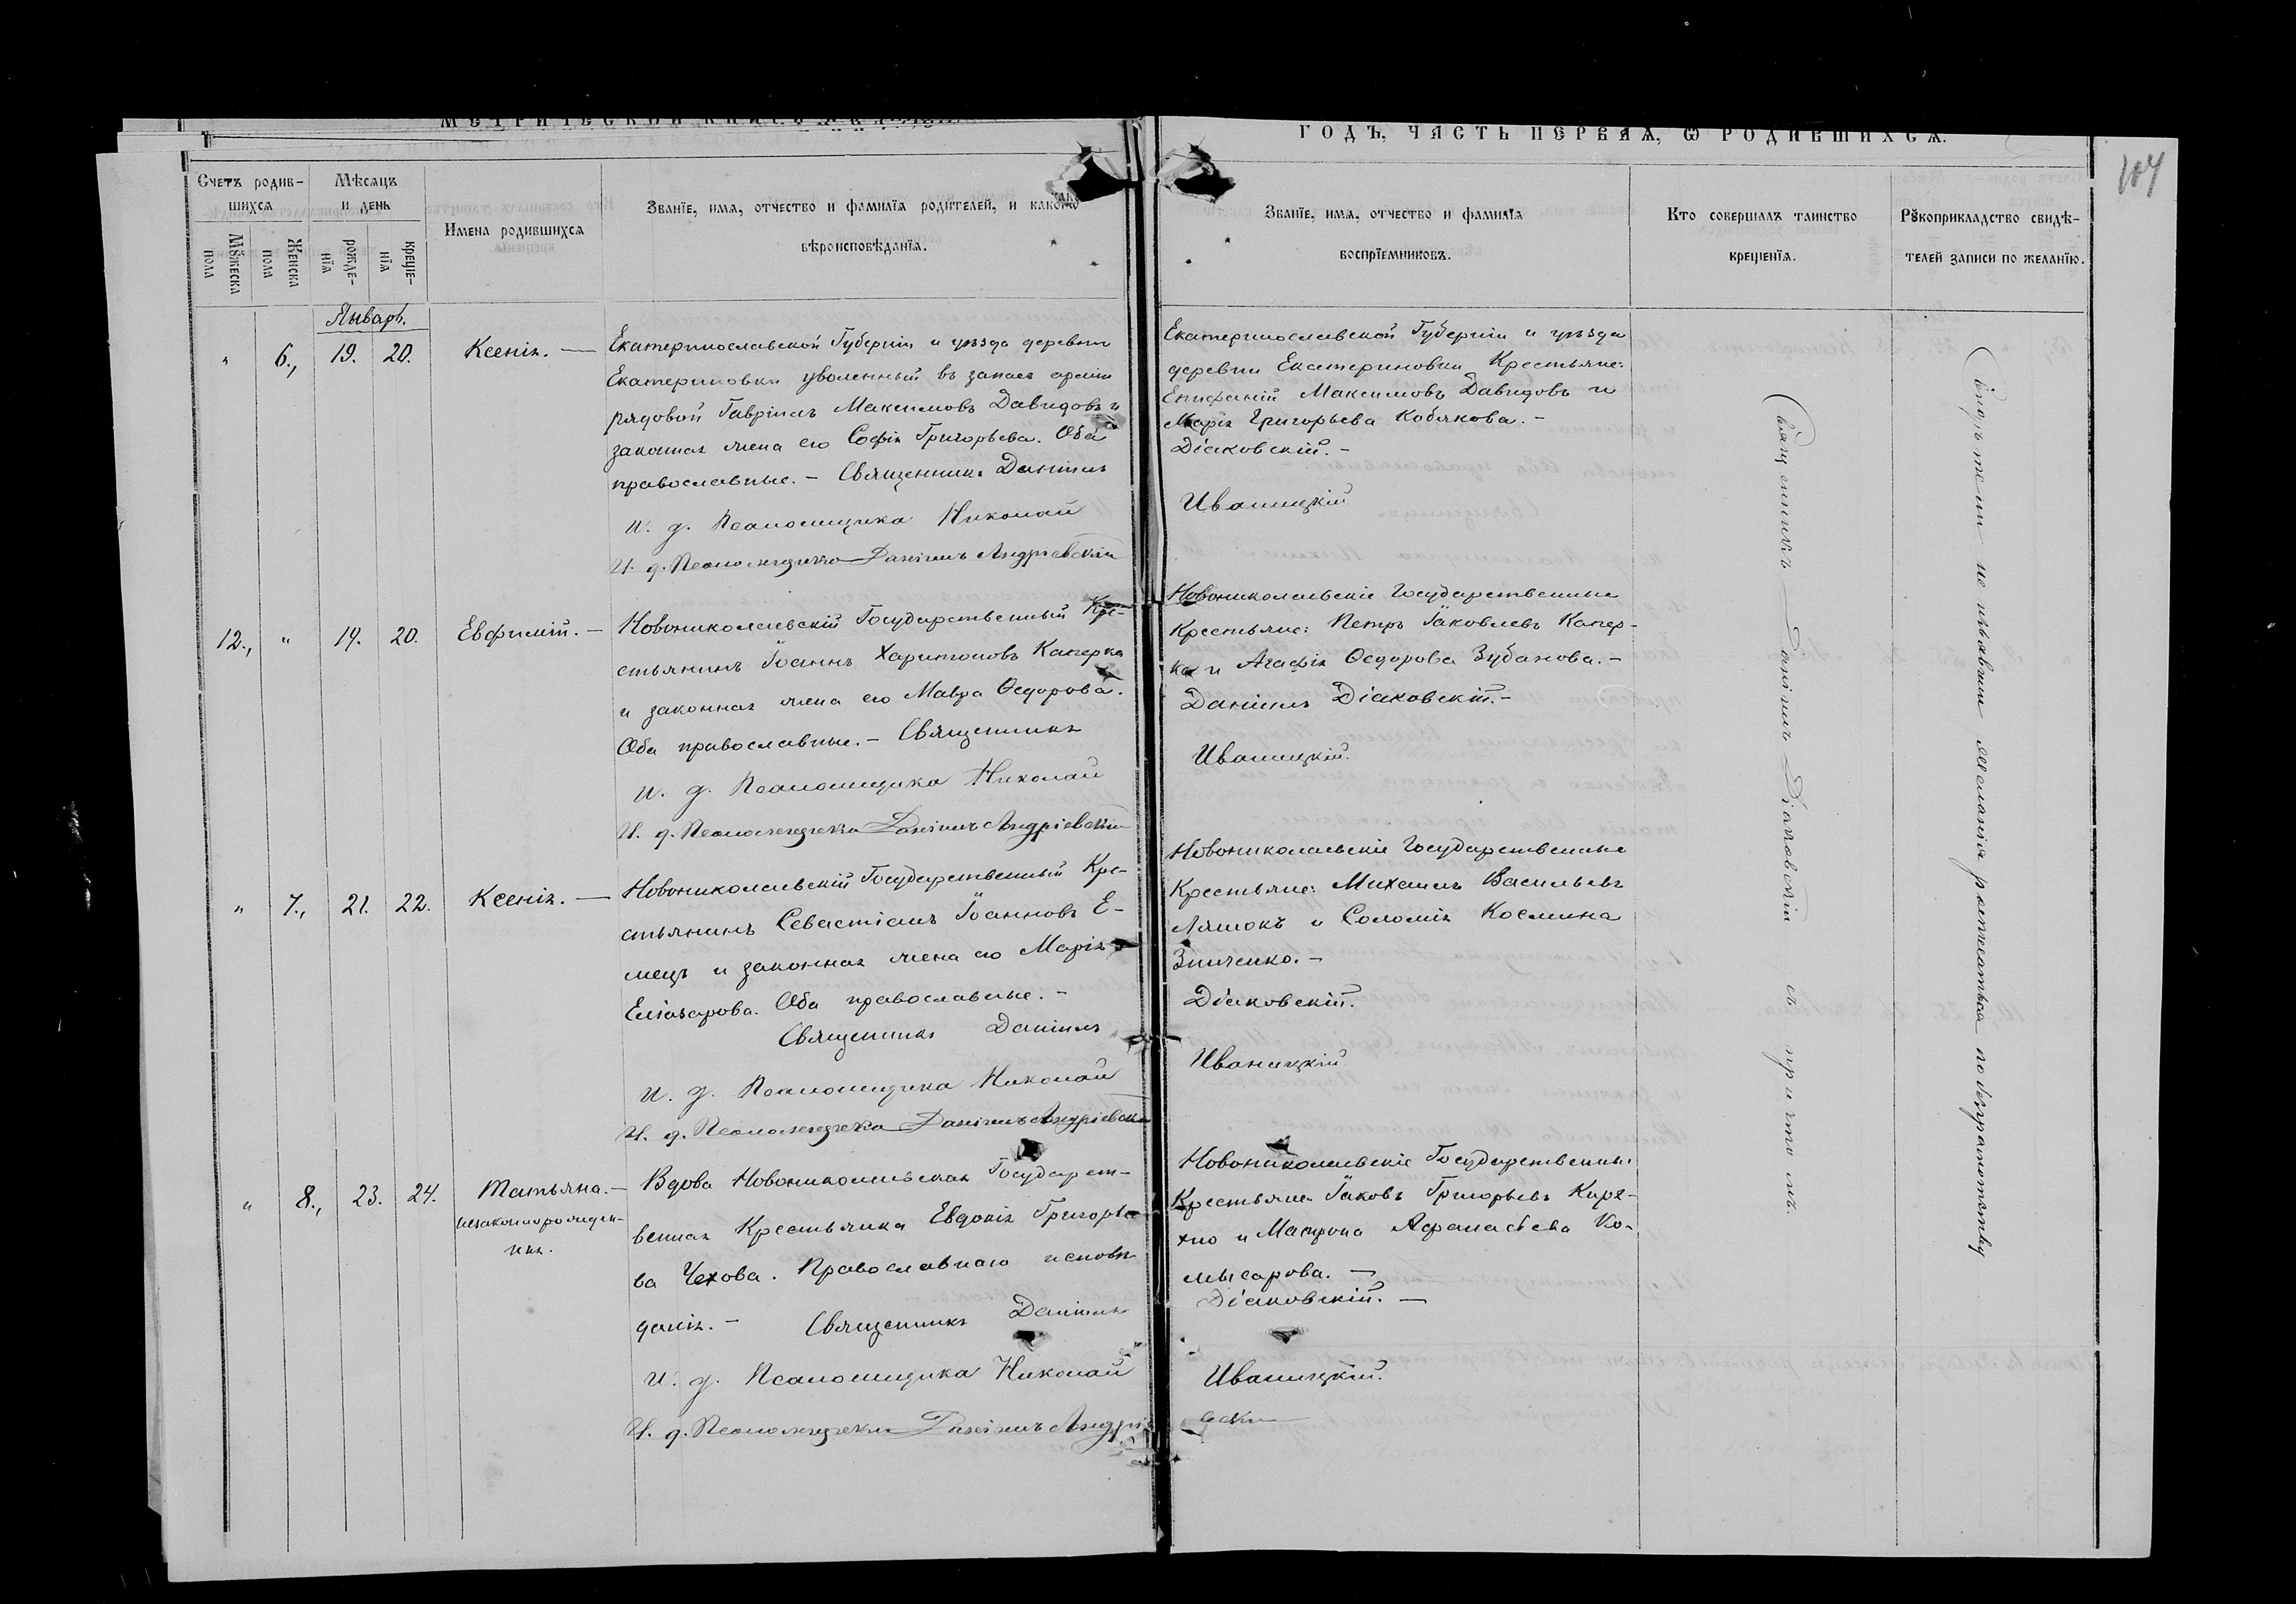 ГОДЪ, ЧАСТЬ ПЕРВАЯ, Ѡ РОДИВШИХСЯ.
107
Счетъ родив-
шихся
Мѣсяцъ
и день
Мꙋжеска
пола
Женска
пола
рожде-
нїя
креще-
нїя
Имена родившихся
Званїе, имя, отчество и фамилїя родителей, и какого
вѣроисповѣданїя.
Званїе, имя, отчество и фамилїя
воспрїемниковъ.
Кто совершалъ таинство
крещенїя.
Рꙋкоприкладство свидѣ-
телей записи по желанїю.
Январь.
" 6., 19. 20. Ксенія. —
Екатеринославской Губерніи и уѣзда деревни
Екатериновки уволенный въ запасъ арміи
рядовой Гавріилъ Максимовъ Давидовъ и
законная жена его Софія Григорьева. Оба
православные. – Священникъ Даніилъ
И. д. Псаломщика Николай
И. д. Псаломщика Даніилъ Андріевскій
Екатеринославской Губерніи и уѣзда
деревни Екатериновки Крестьяне:
Епифаній Максимовъ Давидовъ и
Марія Григорьева Кобякова. –
Діаковскій. –
Иваницкій
12., " 19. 20. Евфимій. –
Новониколаевскій Государственный Кре-
стьянинъ Іоаннъ Харитоновъ Каперка
и законная жена его Мавра Ѳедорова.
Оба православные. – Священникъ
И. д. Псаломщика Николай
И. д. Псаломщика Даніилъ Андріевскій
Новониколаевскіе Государственные
Крестьяне: Петръ Іаковлевъ Капер-
ка и Агафія Ѳедорова Зубанова. –
Даніилъ Діаковскій. –
Иваницкій.
" 7., 21. 22. Ксенія. —
Новониколаевскій Государственный Кре-
стьянинъ Севастіанъ Іоанновъ Е-
мецъ и законная жена его Марія
Еліазарова. Оба православные. –
Священникъ Даніилъ
И. д. Псаломщика Николай
И. д. Псаломщика Даніилъ Андріевскій
Новониколаевскіе Государственные
Крестьяне: Михаилъ Васильевъ
Ляшокъ и Соломія Космина
Зинченко. –
Діаковскій.
Иваницкій
" 8., 23. 24. Татьяна. –
незаконнорожден-
ная.
Вдова Новониколаевская Государст-
венная Крестьянка Евдокія Григорье-
ва Чехова. Православнаго исповѣ-
данія. – Священникъ Даніилъ
И. д. Псаломщика Николай
И. д. Псаломщика Даніилъ Андріе
Новониколаевскіе Государственные
Крестьяне: Іаковъ Григорьевъ Каре-
хно и Матрона Афанасьева Ко-
мысарова. —
Діаковскій. —
Иваницкій.
вскій
Священникъ Даніилъ Діаковскій съ причтомъ.
Свидѣтели не изъявили желанія росписаться по безграмотству